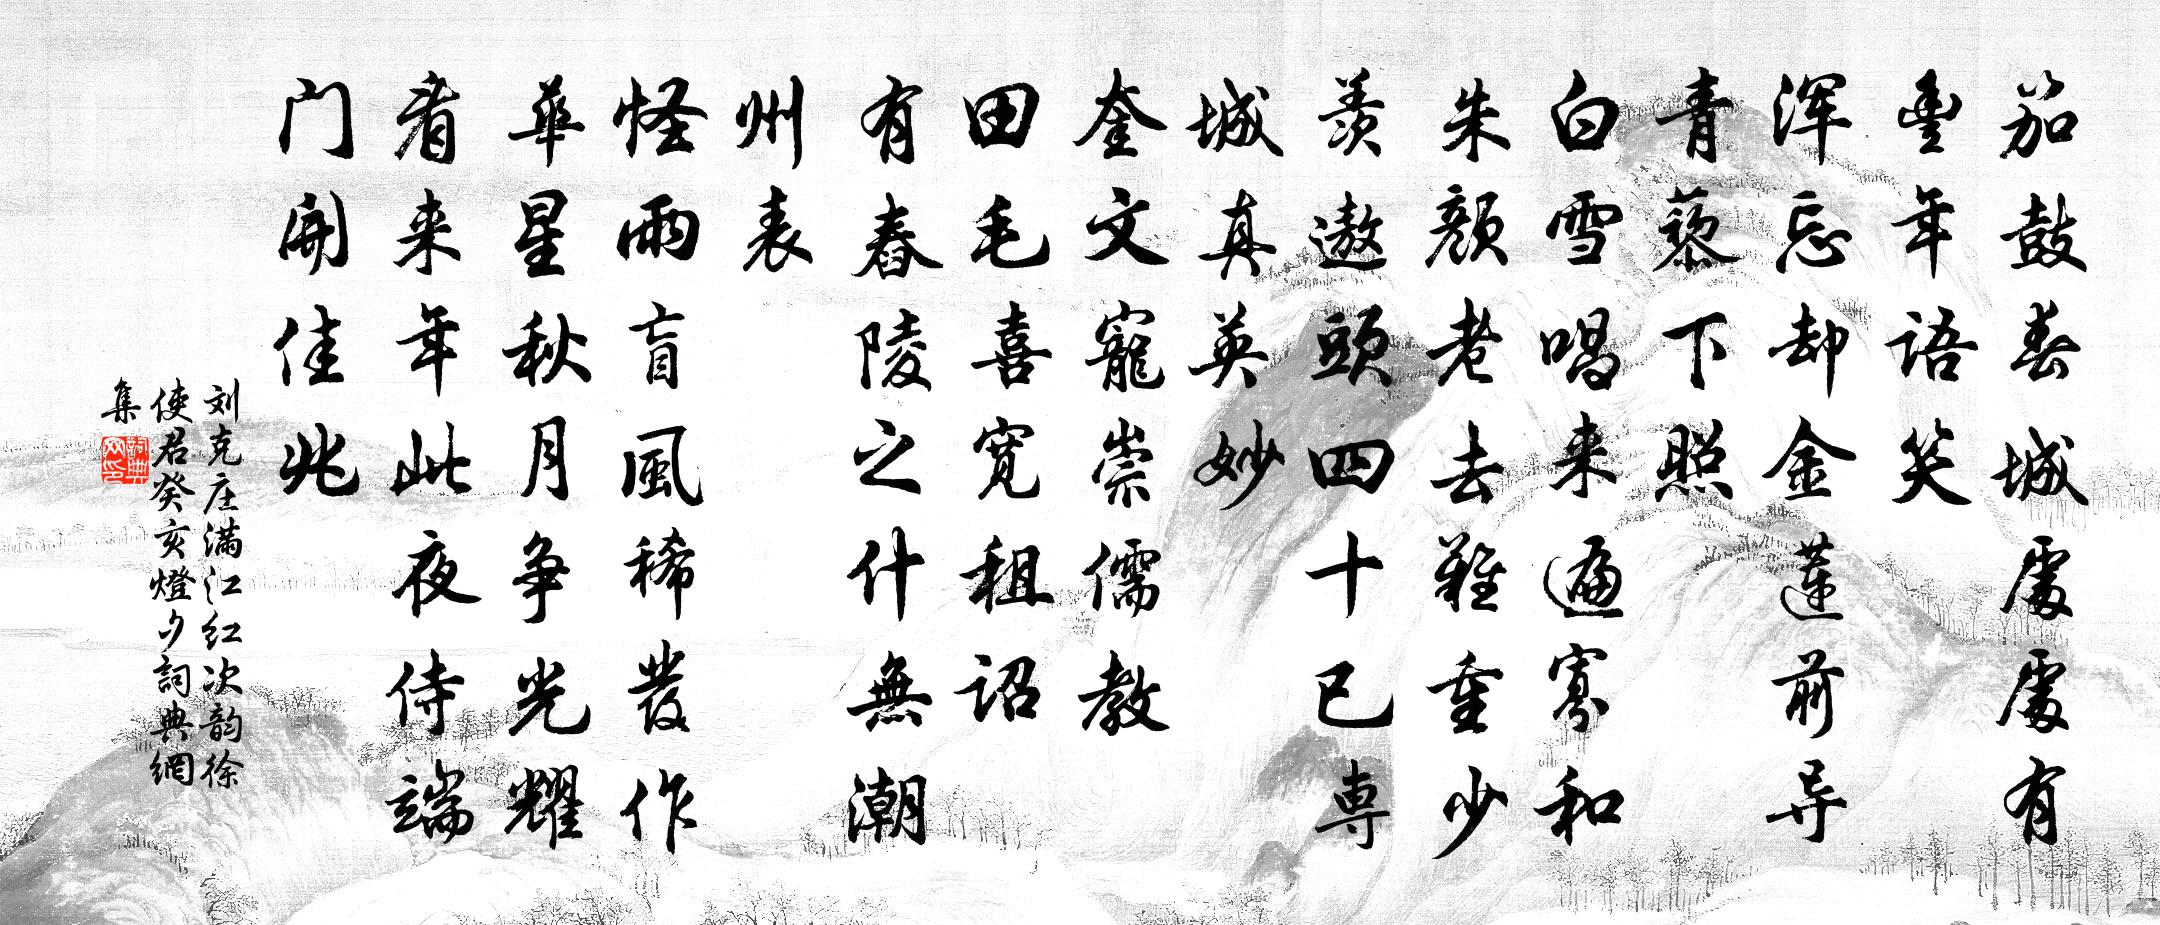 笳鼓春城處處有
豐年语笑
浑忘却金蓮前导
青藜下照
白雪唱来遍寡和
朱顔老去難重少
羡遨頭四十已専
城真英妙
奎文寵崇儒教
田毛喜宽租诏
有舂陵之什無潮
州表
怪雨盲風稀發作
華星秋月争光耀
看来年此夜侍端
门開佳兆
刘克庄满江红次韵徐
使君癸亥燈夕詞典網
集